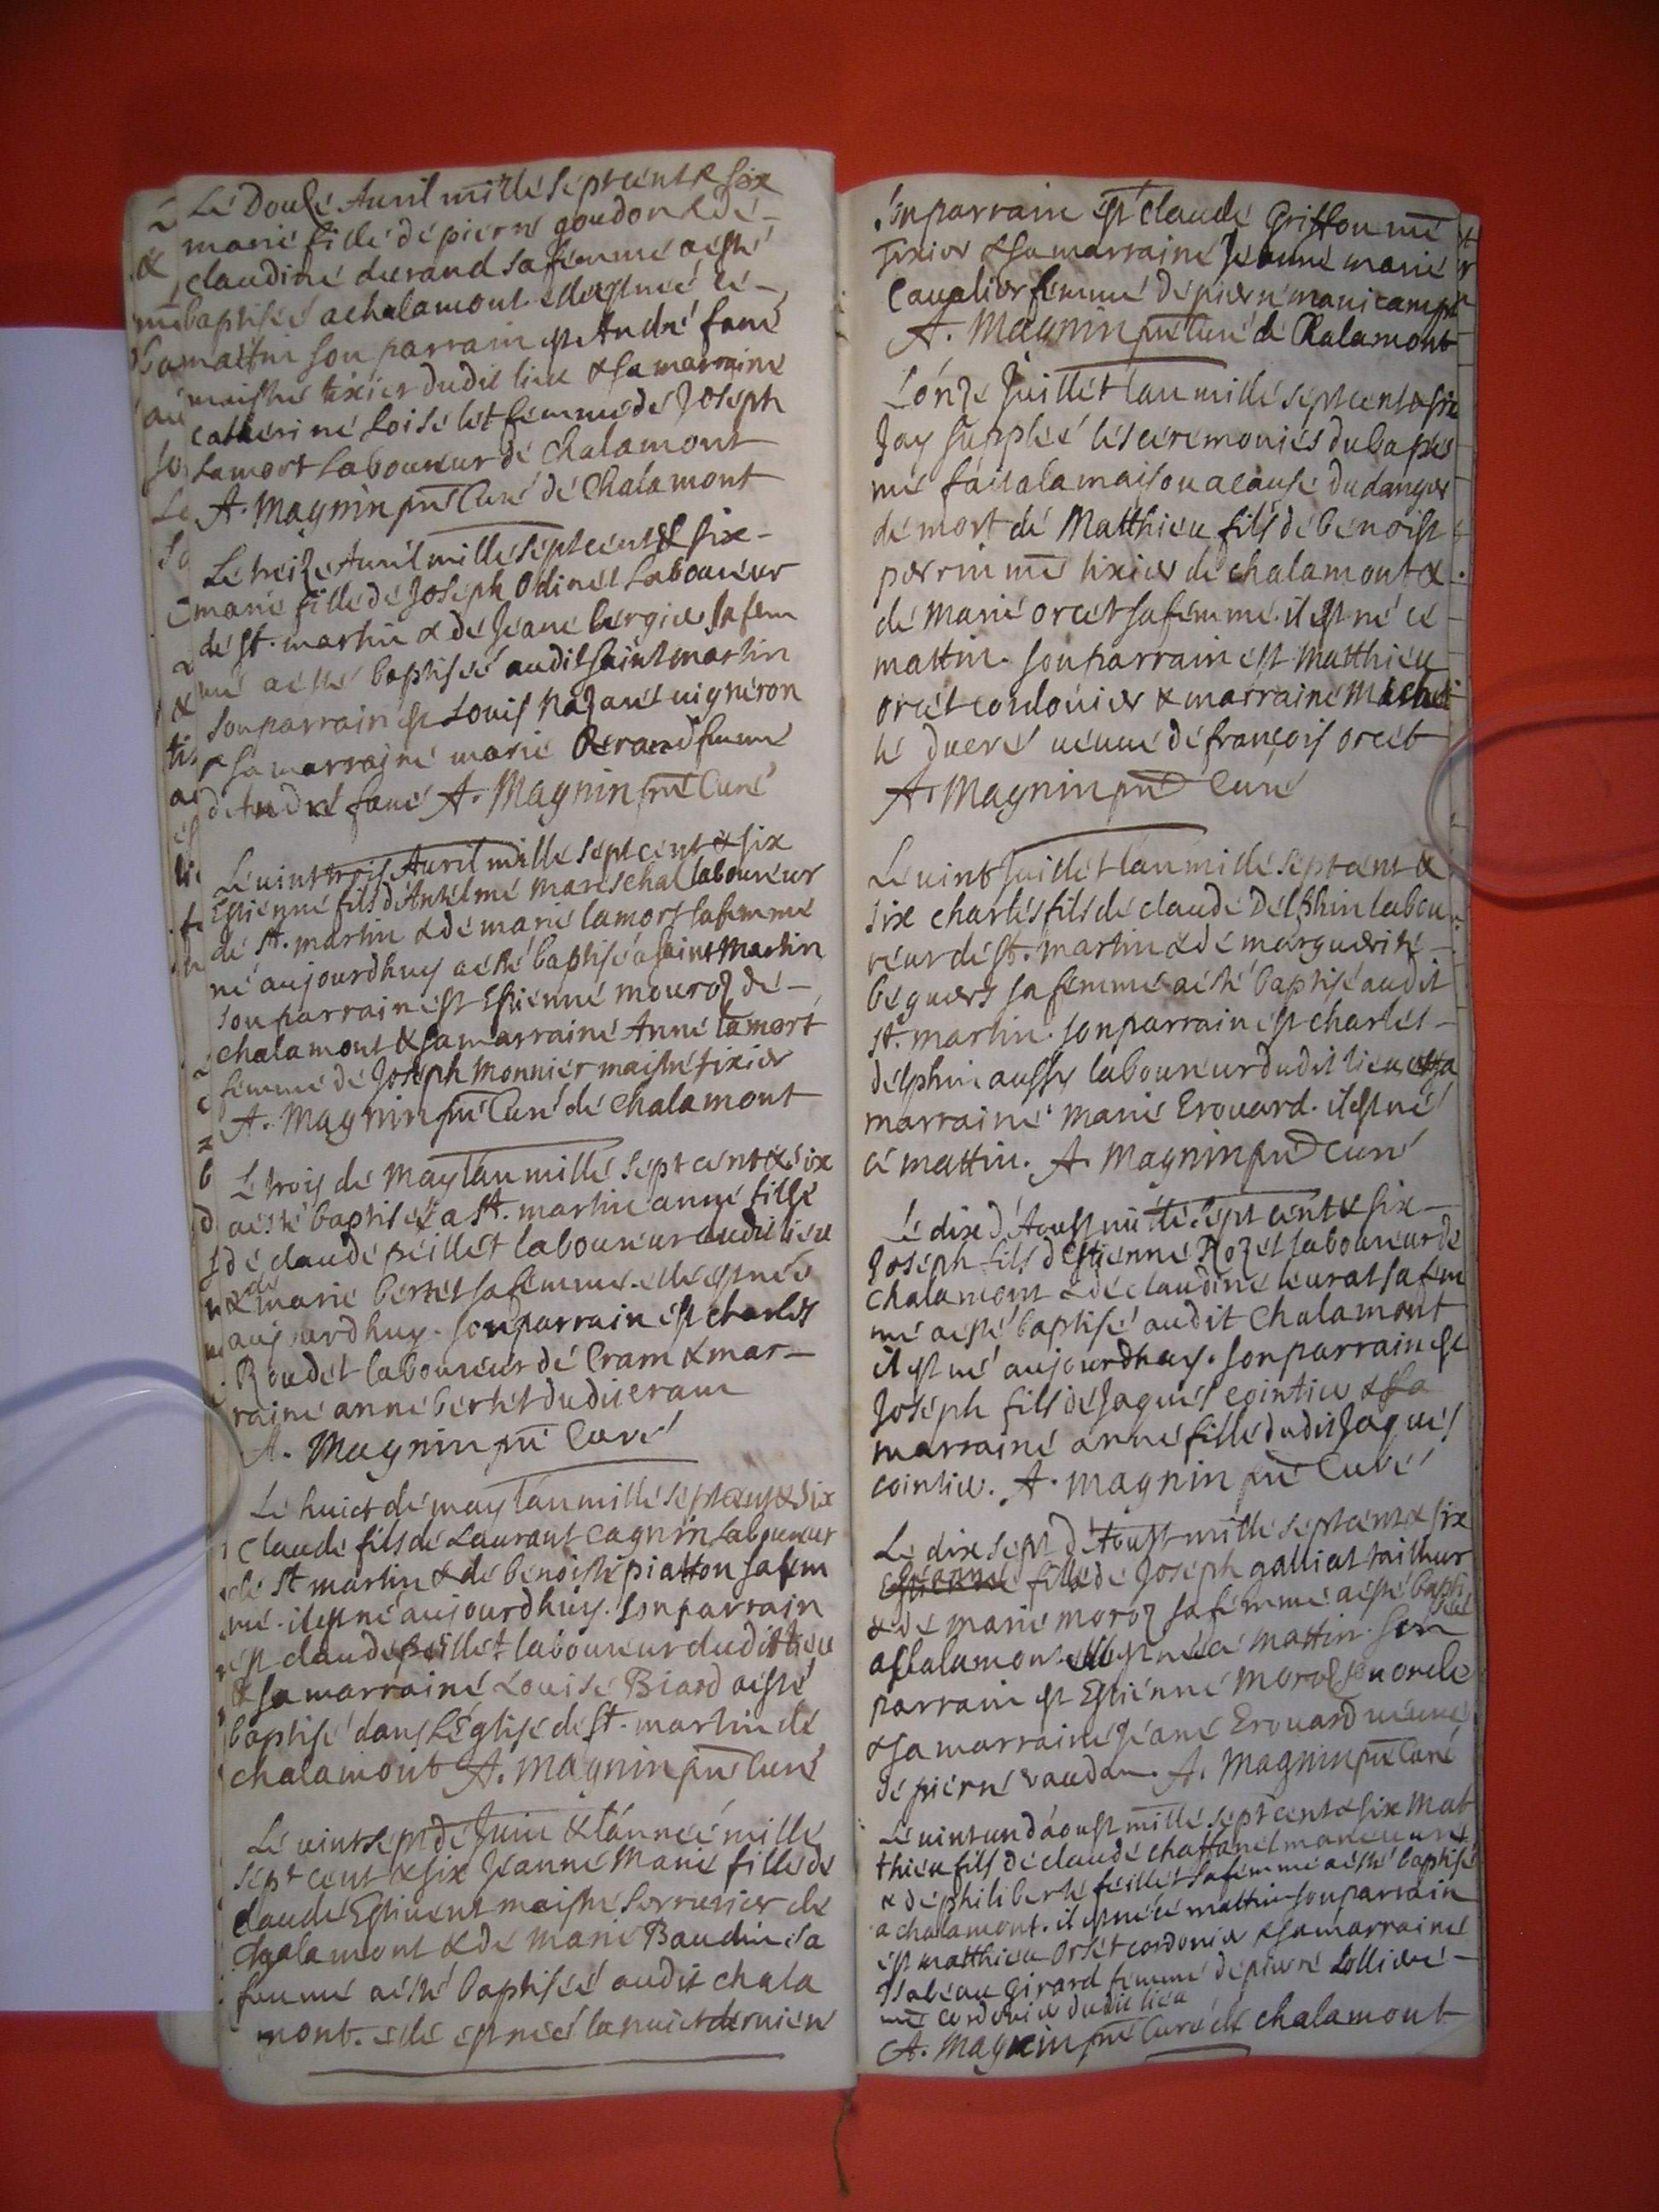 Le Douse Auril mille sept cent & six
marie fille de pierre goudon & de -
claudine durand sa femme a esté
baptisée a chalamont. elle est née ce -
mattin son parrain est André fané
maistre tixier dudit lieu & sa marraine
catherine Loiselet femme de Joseph
Lamort Laboureur de Chalamont
A. Magnin pre Curé de Chalamont
Le treize Auril mille sept cent & six -
marie fille de Joseph Odinet Laboureur
de st. martin & de Jeane bergier sa fem
me a esté baptisée audit saint martin
son parrain est Louis Nazaret uigneron
& sa marraine marie Derand femme
d'André fané A. Magnin pre Curé
Le uint trois Auril mille sept cent & six
Estienne fils d'Antelme Mareschal laboureur
de st. martin & de marie lamort sa femme
né aujourdhuy a esté baptisé a saint Martin
son parrain est Estienne mouroz de -
chalamont & sa marraine Anne lamort
femme de Joseph Monnier maistre tixier
A. Magnin pre Curé de Chalamont
Le trois de May lan mille sept cent & six
a esté baptisée a st. martin anne fille
de claude peillet laboureur dudit lieu
& de marie bertet sa femme. elle est née
aujourdhuy. son parrain est charles
Roudet laboureur de Cram & mar -
raine anne bertet dudit cram
A. Magnin pre Curé
Le huict de may lan mille sept cent & six
Claude fils de Laurant Cagnin Laboureur
de St martin & de benoiste piatton sa fem
me. il est né aujourdhuy. son parrain
est claude peillet laboureur dudit lieu
& sa marraine Louise Biard a esté
baptisé dans L'Eglise de st. martin de
chalamont A. Magnin pre Curé
Le uint sept de Juin & lannéé mille
sept cent & six Jeanne Marie fille de
claude Estiuent maistre serrurier de
Chalamont & de Marie Baudin sa
femme a esté baptisée audit chala
mont. elle est née la nuict derniere
son parrain est claude Griffon me
Tixier & sa marraine Jeanne marie
Caualier femme de pierre manicamp
A. Magnin pre Curé de Chalamont
L'onze Juillet lan mille sept cent & six
Jay suppléé les ceremonies du baptes
me fait a la maison a cause du danger
de mort de Matthieu fils de benoist
perrin me tixier de chalamont &
de Marie orcet sa femme. il est né ce -
mattin. son parrain est Matthieu
orcet cordonier & marraine Miche
le ducré ueuue de françois orcet
A. Magnin pre Curé
Le uint Juillet lan mille sept cent &
six charles fils de claude Delphin labou
reur de st. martin & de marguerite -
beguers sa femme a esté baptisé audit
st. martin. son parrain est charles -
delphin aussy laboureur dudit lieu & sa
marraine Marie Erouard. il est né
ce mattin. A. Magnin pre Curé
Le dix d'Aoust mille sept cent & six -
Joseph fils d'Estienne Rozet laboureur de
chalamont & de claudine leurat sa fem
me a esté baptisé audit Chalamont
il est né aujourdhuy. son parrain est
Joseph fils de Jaques cointier & sa
marraine anne fille dudit Jaques
cointier. A. Magnin pre Curé
Le dix sept d'Aoust mille sept cent & six
Jeanne fille de Joseph galliat tailleur
& de marie moroz sa femme a esté bapti
sée
a chalamont elle est née ce mattin. son
parrain est Estienne Moroz son oncle
& sa marraine Jeane Erouard ueuue
de pierre vaudan. A. Magnin pre Curé
Le uint un d'aoust mille sept cent & six Mat
thieu fils de claude chattanel manouure
& de philiberte feillet sa femme a esté baptisé
a chalamont. il est né ce mattin son parrain
est matthieu Orset cordonier & sa marraine
Isabeau Girard femme de pierre Lolliere -
me cordonier dudit lieu
A. Magnin pre Curé de chalamont